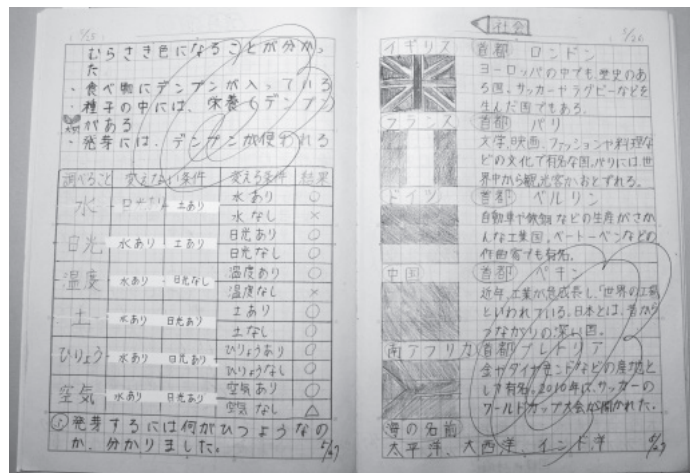 5/25
むらさき色になることが分かっ
た
・食べ物にデンプンが入っている
・種子の中には、栄養(デンプン)
がある
・発芽には、デンプンが使われる
調べること 変えない条件 変える条件 結果
水 日光あり 土あり 水あり ○
水なし ×
日光 水あり 土あり 日光あり ○
日光なし ○
温度 水あり 日光なし 温度あり ○
温度なし ×
土 水あり 日光あり 土あり ○
土なし ○
ひりょう 水あり 日光あり ひりょうあり ○
ひりょうなし ○
空気 水あり 日光あり 空気あり ○
空気なし △
発芽するには何がひつようなの
か、分かりました。 5/27
社会
5/26
イギリス 首都 ロンドン
ヨーロッパの中でも、歴史のあ
る国。サッカーやラグビーなどを
生んだ国でもある。
フランス 首都 パリ
文学、映画、ファッションや料理な
どの文化で有名な国。パリには、世
界中から観光客がおとずれる。
ドイツ 首都 ベルリン
自動車や鉄鋼などの生産がさか
んな工業国。ベートーベンなどの
作曲家でも有名。
中国 首都 ペキン
近年、工業が急成長し、「世界の工場」
といわれている。日本とは、昔から
つながりの深い国。
南アフリカ 首都 プレトリア
金やダイヤモンドなどの産地と
して有名。2010年は、サッカーの
ワールドカップ大会が開かれた。
海の名前
太平洋、大西洋、インド洋 5/27